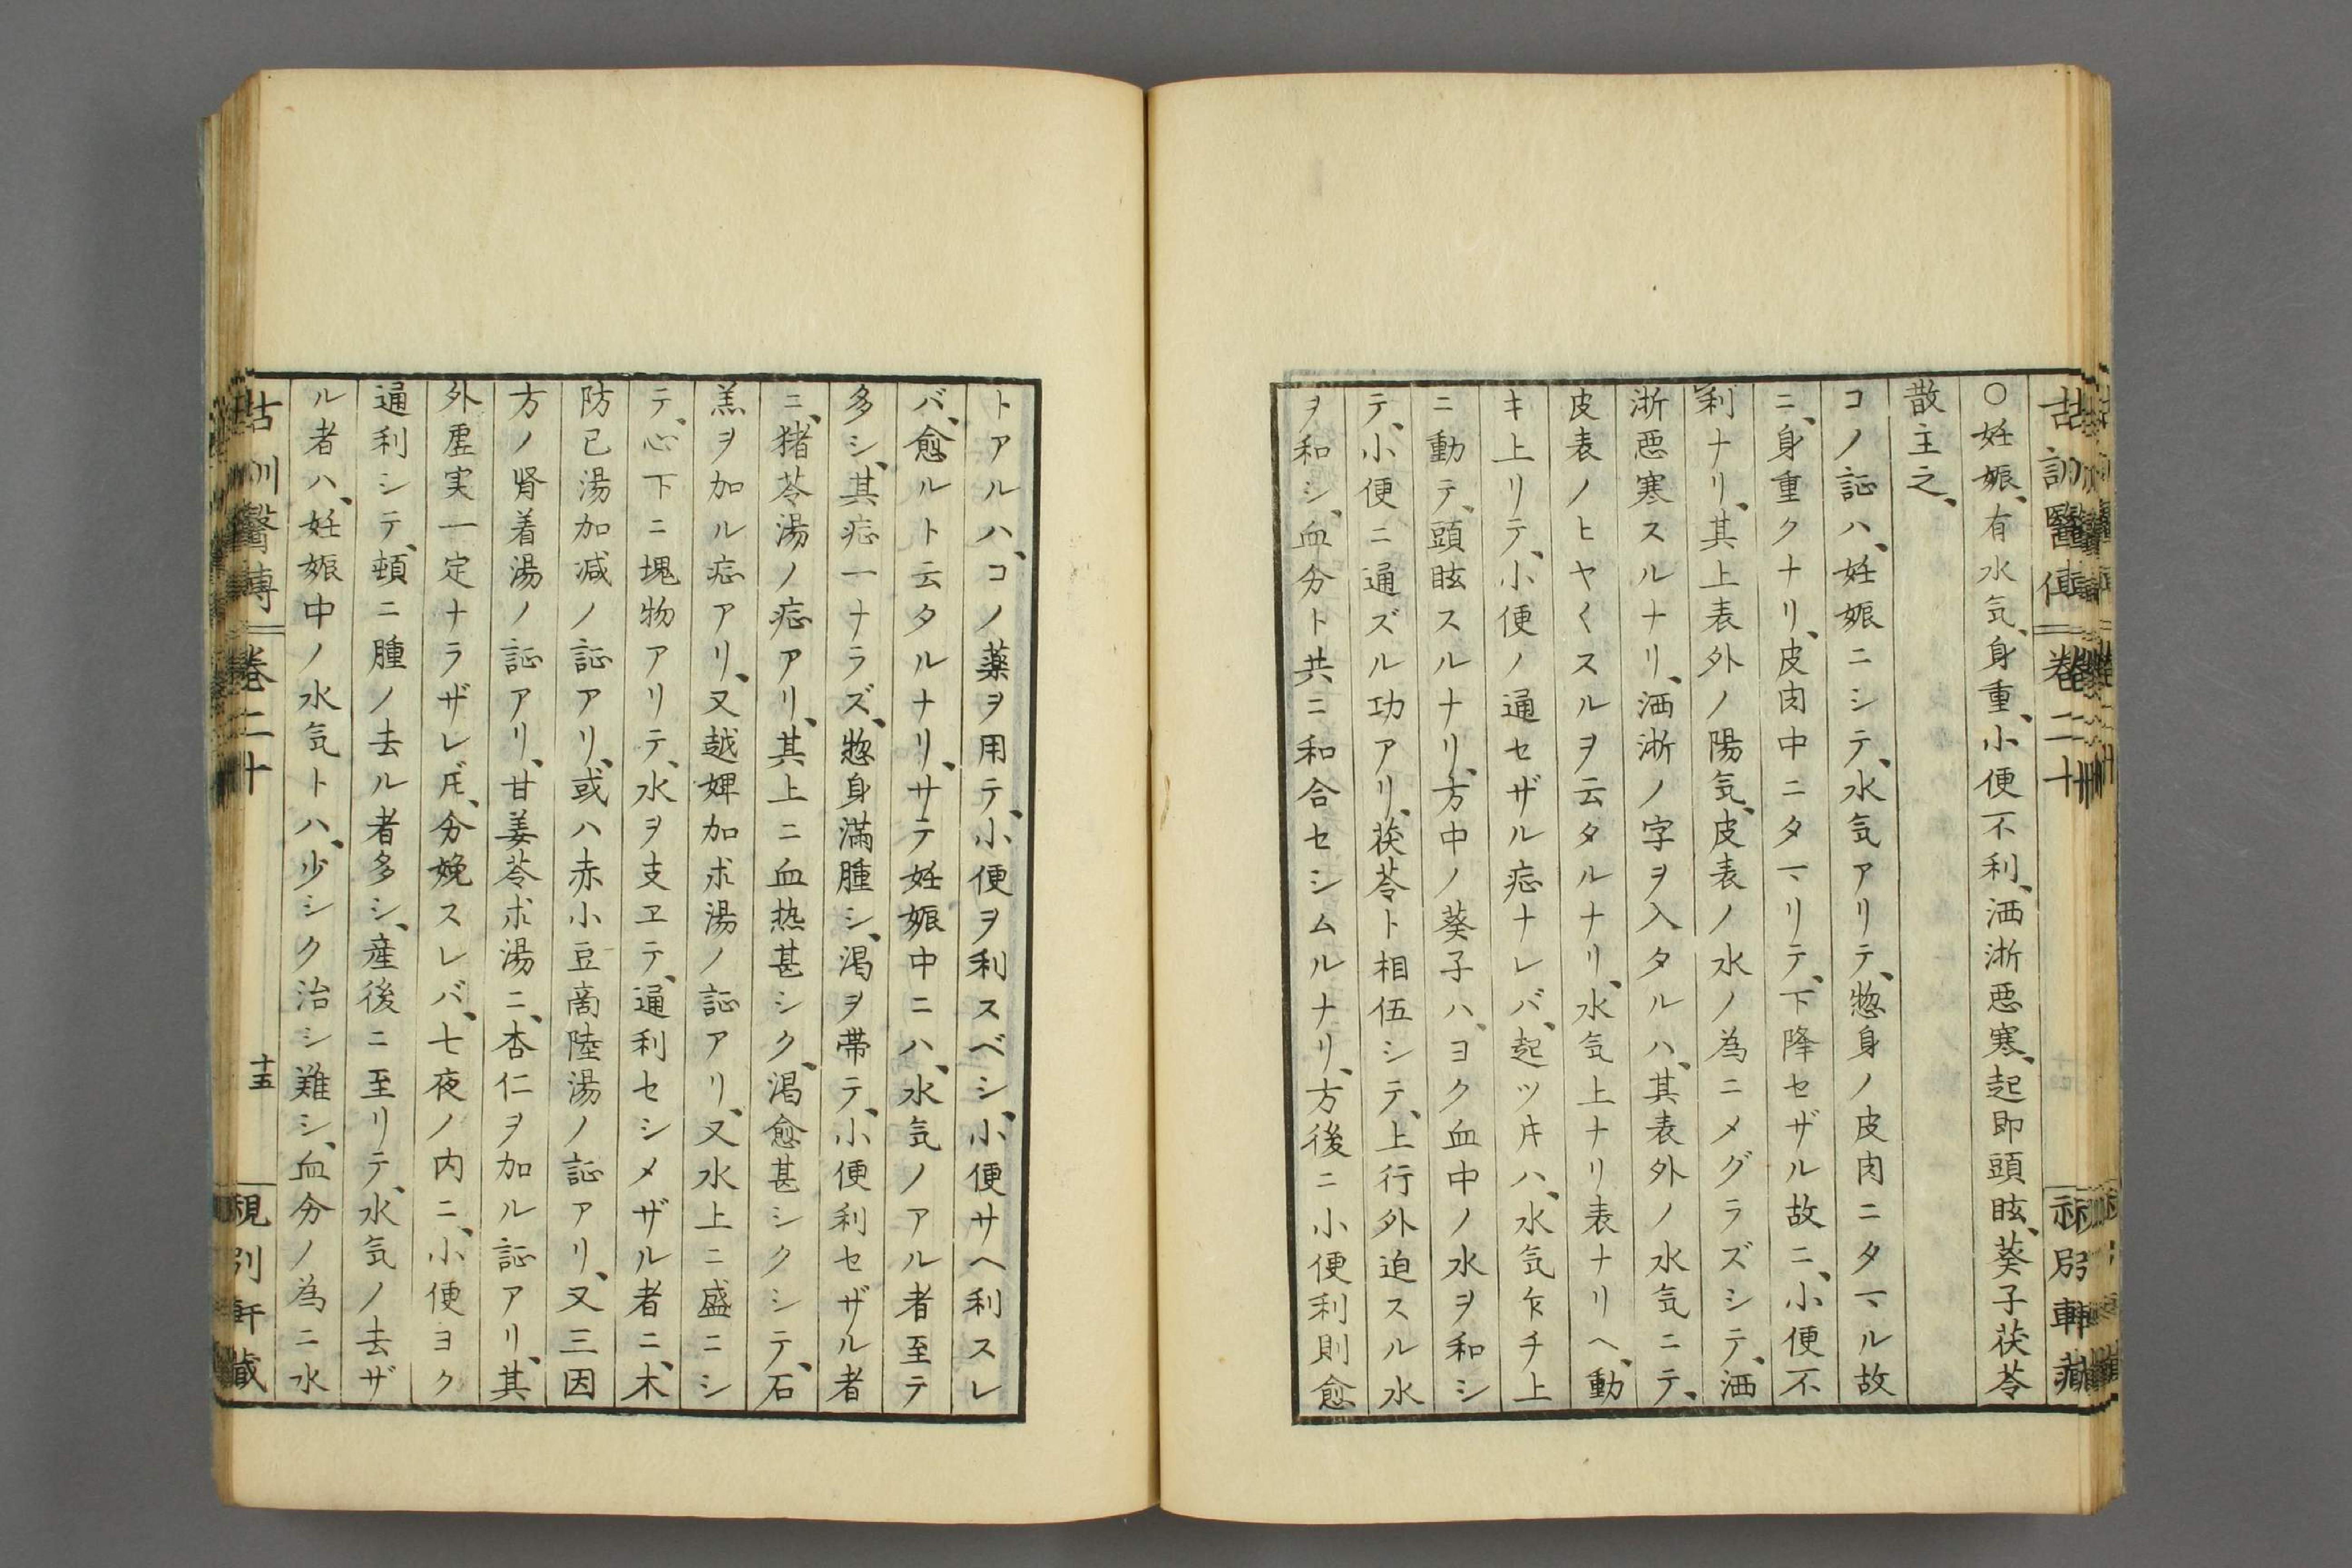 〇妊娠、有水気、身重、小便不利、洒淅悪寒、起即頭眩、葵子茯苓
散主之、
コノ証ハ、妊娠ニシテ、水気アリテ、惣身ノ皮肉ニタマル故
ニ、身重クナリ、皮肉中ニタマリテ、下降セザル故ニ、小便不
利ナリ、其上表外ノ陽気、皮表ノ水ノ為ニメグラズシテ、洒
淅悪寒スルナリ、洒淅ノ字ヲ入タルハ、其表外ノ水気ニテ、
皮表ノヒヤ〱スルヲ云タルナリ、水気上ナリ表ナリヘ、動
キ上リテ、小便ノ通セザル症ナレバ、起ツ𪜈ハ、水気乍チ上
ニ動テ、頭眩スルナリ、方中ノ葵子ハ、ヨク血中ノ水ヲ和シ
テ、小便ニ通ズル功アリ、茯苓ト相伍シテ、上行外迫スル水
ヲ和シ、血分ト共ニ和合セシムルナリ、方後ニ小便利則愈
トアルハ、コノ薬ヲ用テ、小便ヲ利スベシ、小便サヘ利スレ
バ、愈ルト云タルナリ、サテ妊娠中ニハ、水気ノアル者至テ
多シ、其症一ナラズ、惣身満腫シ、渇ヲ帯テ、小便利セザル者
ニ、猪苓湯ノ症アリ、其上ニ血熱甚シク、渇愈甚シクシテ、石
羔ヲ加ル症アリ、又越婢加朮湯ノ証アリ、又水上ニ盛ニシ
テ、心下ニ塊物アリテ、水ヲ支ヱテ、通利セシメザル者ニ、木
防已湯加減ノ証アリ、或ハ赤小豆商陸湯ノ証アリ、又三因
方ノ腎着湯ノ証アリ、甘姜苓朮湯ニ、杏仁ヲ加ル証アリ、其
外虚実一定ナラザレ𪜈、分娩スレバ、七夜ノ内ニ、小便ヨク
通利シテ、頓ニ腫ノ去ル者多シ、産後ニ至リテ、水気ノ去ザ
ル者ハ、妊娠中ノ水気トハ、少シク治シ難シ、血分ノ為ニ水
詁訓醫傳 巻二十 十五